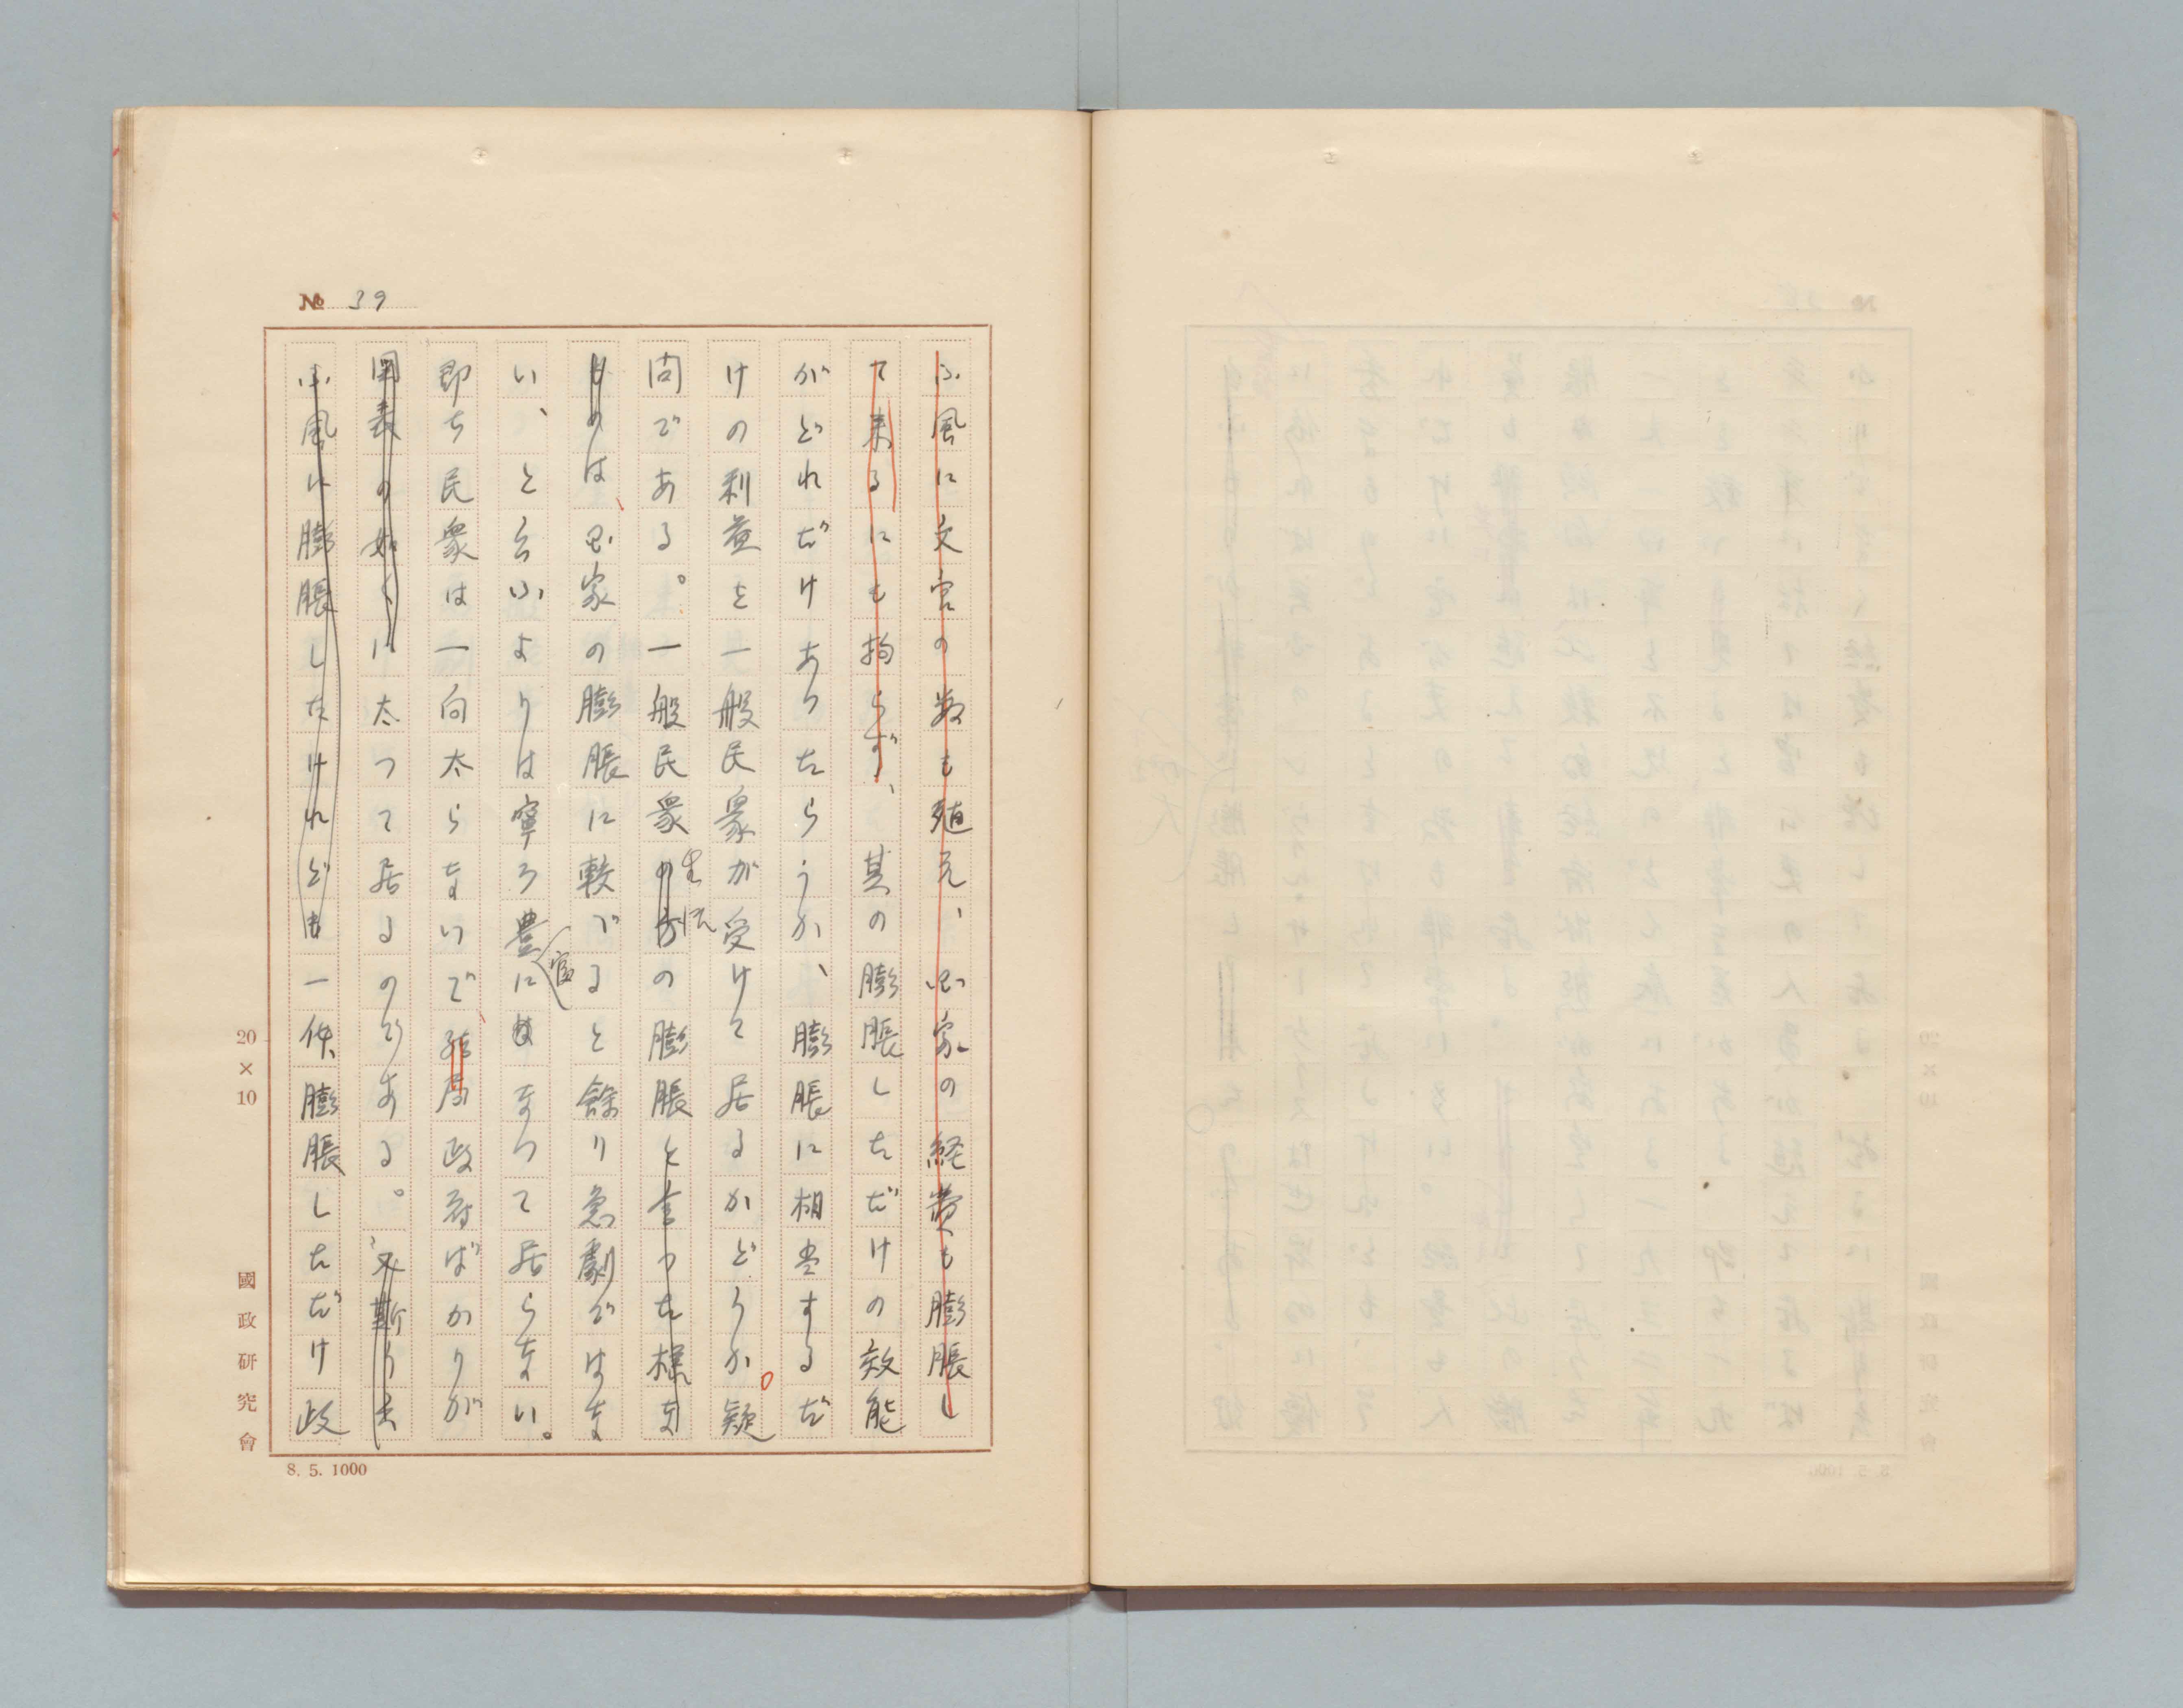 № 39
ふ風に文官の数も殖え、国家の経費も膨脹し
て来るにも拘らず、其の膨脹しただけの效能
がどれだけあつたらうか、膨脹に相当するだ
けの利益を一般民衆が受けて居るかどうか疑
問である。一般民衆の方の膨脹と言つた様な
生活
ものは国家の膨脹に較べると餘り急劇ではな
い、と云ふよりは寧ろ豊にはなつて居らない。
富
即ち民衆は一向太らないで結局政府ばかりが
図表の如くに太つて居るのである。又斯う云
ふ風に膨脹したけれども一体膨脹しただけ政
20×10
國政研究會
8. 5. 1000